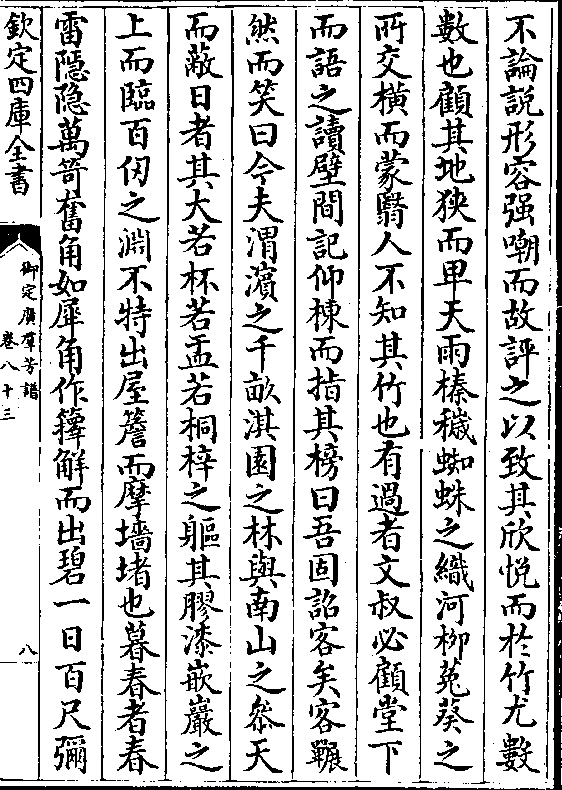 不論説形容强嘲而故評之以致其欣悦而於竹尤數
數也顧其地狹而卑天雨榛穢蜘蛛之織河栁菟葵之
所交横而蒙翳人不知其竹也有過者文叔必顧堂下
而語之讀壁間記仰棟而指其榜曰吾固詔客矣客冁
然而笑曰今夫渭濵之千畝淇園之林與南山之叅天
而蔽日者其大若杯若盂若桐梓之軀其膠漆嵌巖之
上而臨百仭之淵不特出屋簷而摩墻堵也暮春者春
雷隱隱萬笴奮角如犀角作籜解而出碧一日百尺彌
欽定四庫全書
御定廣羣芳譜
卷八十三
八